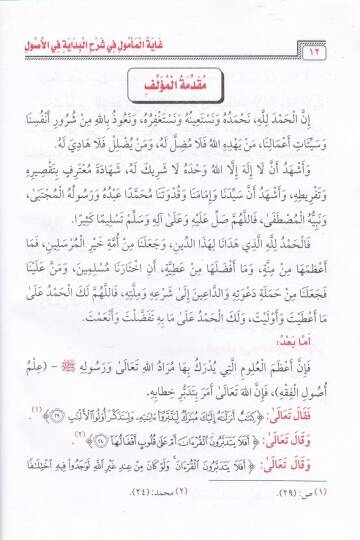 ١٢
غَايَةُ الْمَأْمُولِ فِي شَرْحِ الْبِدَايَةِ فِي الأُصُولِ
مُقَدِّمَةُ الْمُؤَلِّفِ
إِنَّ الْحَمْدَ لِلَّهِ، نَحْمَدُهُ وَنَسْتَعِينُهُ وَنَسْتَغْفِرُهُ، وَنَعُوذُ بِاللهِ مِنْ شُرُورِ أَنْفُسِنَا
وَسَيِّئَاتِ أَعْمَالِنَا، مَنْ يَهْدِهِ اللهُ فَلَا مُضِلَّ لَهُ، وَمَنْ يُضْلِلْ فَلَا هَادِيَ لَهُ.
وَأَشْهَدُ أَنْ لَا إِلَهَ إِلَّا اللهُ وَحْدَهُ لَا شَرِيكَ لَهُ، شَهَادَةَ مُعْتَرِفٍ بِتَقْصِيرِهِ
وَتَفْرِيطِهِ، وَأَشْهَدُ أَنَّ سَيِّدَنَا وَإِمَامَنَا وَقُدْوَتَنَا مُحَمَّدًا عَبْدُهُ وَرَسُولُهُ الْمُجْتَبَى،
وَنَبِيُّهُ الْمُصْطَفَى، فَاللَّهُمَّ صَلِّ عَلَيْهِ وَعَلَى آلِهِ وَسَلِّمْ تَسْلِيمًا كَثِيرًا.
فَالْحَمْدُ لِلَّهِ الَّذِي هَدَانَا لِهَذَا الدِّينِ، وَجَعَلَنَا مِنْ أُمَّةِ خَيْرِ الْمُرْسَلِينَ، فَمَا
أَعْظَمَهَا مِنْ مِنَّةٍ، وَمَا أَفْضَلَهَا مِنْ عَطِيَّةٍ، أَنِ اخْتَارَنَا مُسْلِمِينَ، وَمَنَّ عَلَيْنَا
فَجَعَلَنَا مِنْ حَمَلَةِ دَعْوَتِهِ وَالدَّاعِينَ إِلَى شَرْعِهِ وَمِلَّتِهِ، فَاللَّهُمَّ لَكَ الْحَمْدُ عَلَى
مَا أَعْطَيْتَ وَأَوْلَيْتَ، وَلَكَ الْحَمْدُ عَلَى مَا بِهِ تَفَضَّلْتَ وَأَنْعَمْتَ.
أَمَّا بَعْدُ:
فَإِنَّ أَعْظَمَ الْعُلُومِ الَّتِي يُدْرَكُ بِهَا مُرَادُ اللهِ تَعَالَى وَرَسُولِهِ ﷺ – (عِلْمُ
أُصُولِ الْفِقْهِ)، فَإِنَّ اللهَ تَعَالَى أَمَرَ بِتَدَبُّرِ خِطَابِهِ.
فَقَالَ تَعَالَى: ﴿كِتَٰبٌ أَنزَلْنَٰهُ إِلَيْكَ مُبَٰرَكٌ لِّيَدَّبَّرُوٓا۟ ءَايَٰتِهِۦ وَلِيَتَذَكَّرَ أُو۟لُوا۟ ٱلْأَلْبَٰبِ ﴿٢٩﴾﴾ (١)
وَقَالَ تَعَالَى: ﴿أَفَلَا يَتَدَبَّرُونَ ٱلْقُرْءَانَ أَمْ عَلَىٰ قُلُوبٍ أَقْفَالُهَآ ﴿٢٤﴾﴾ (٢).
وَقَالَ تَعَالَى: ﴿أَفَلَا يَتَدَبَّرُونَ ٱلْقُرْءَانَ ۚ وَلَوْ كَانَ مِنْ عِندِ غَيْرِ ٱللَّهِ لَوَجَدُوا۟ فِيهِ ٱخْتِلَٰفًا
(١) ص: (٢٩).
(٢) محمد: (٢٤).